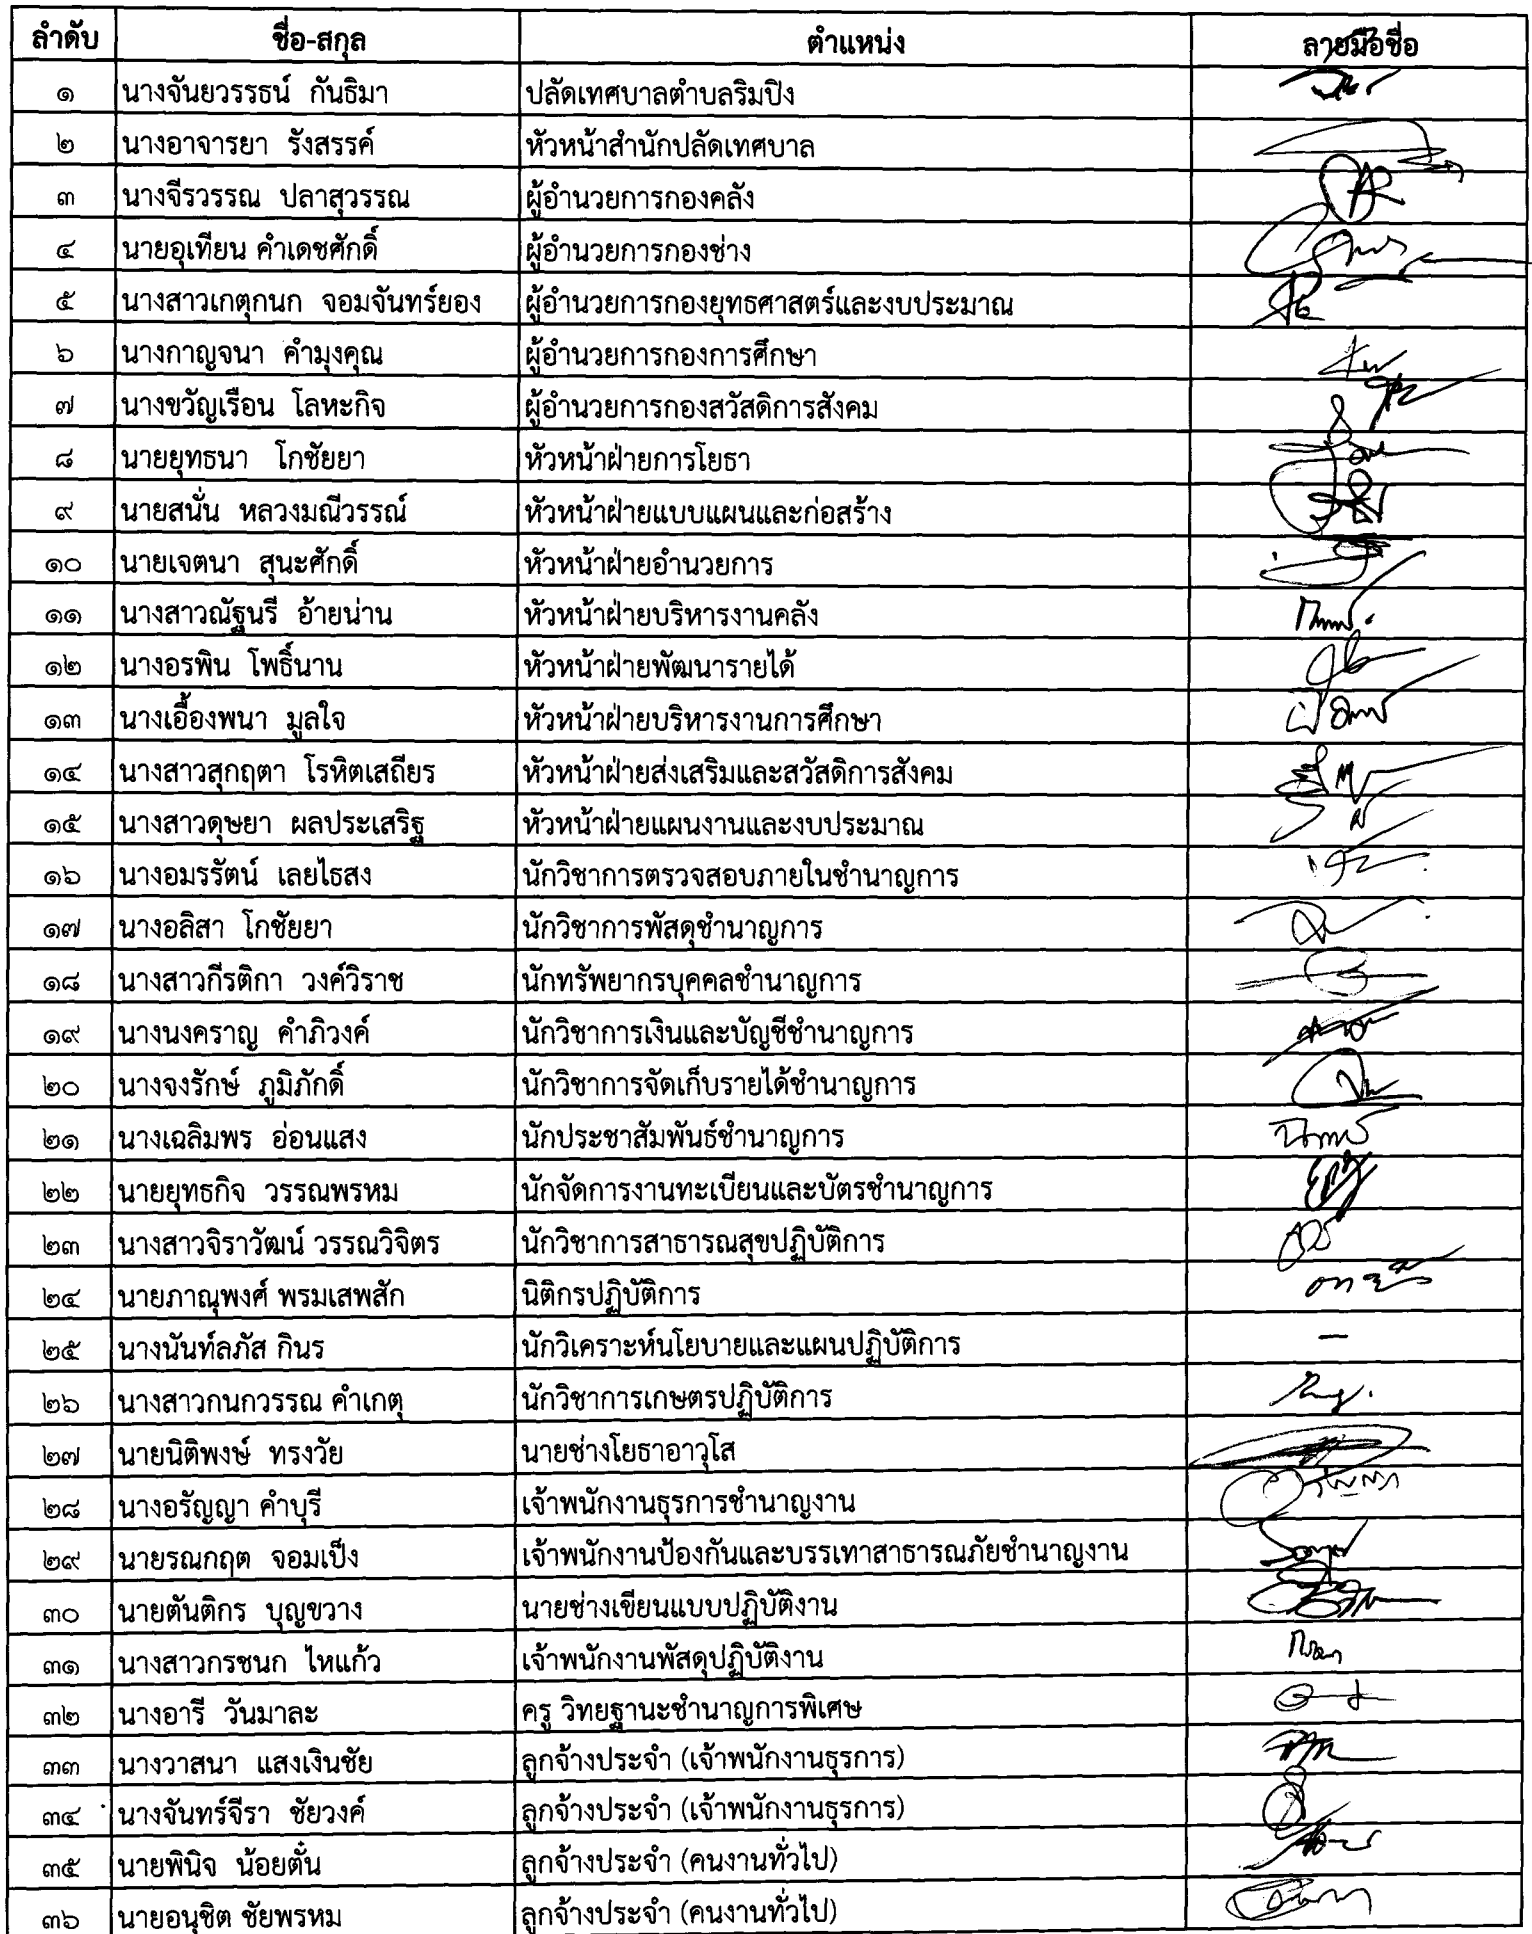 ลำดับ ชื่อ-สกุล ตำแหน่ง ลายมือชื่อ
๑ นางจันยวรรธน์ กันธิมา ปลัดเทศบาลตำบลริมปิง
๒ นางอาจารยา รังสรรค์ หัวหน้าสำนักปลัดเทศบาล
๓ นางจีรวรรณ ปลาสุวรรณ ผู้อำนวยการกองคลัง
๔ นายอุเทียน คำเดชศักดิ์ ผู้อำนวยการกองช่าง
๕ นางสาวเกตุกนก จอมจันทร์ยอง ผู้อำนวยการกองยุทธศาสตร์และงบประมาณ
๖ นางกาญจนา คำมุงคุณ ผู้อำนวยการกองการศึกษา
๗ นางขวัญเรือน โลหะกิจ ผู้อำนวยการกองสวัสดิการสังคม
๘ นายยุทธนา โกชัยยา หัวหน้าฝ่ายการโยธา
๙ นายสนั่น หลวงมณีวรรณ์ หัวหน้าฝ่ายแบบแผนและก่อสร้าง
๑๐ นายเจตนา สุนะศักดิ์ หัวหน้าฝ่ายอำนวยการ
๑๑ นางสาวณัฐนรี อ้ายน่าน หัวหน้าฝ่ายบริหารงานคลัง
๑๒ นางอรพิน โพธิ์นาน หัวหน้าฝ่ายพัฒนารายได้
๑๓ นางเอื้องพนา มูลใจ หัวหน้าฝ่ายบริหารงานการศึกษา
๑๔ นางสาวสุกฤตา โรหิตเสถียร หัวหน้าฝ่ายส่งเสริมและสวัสดิการสังคม
๑๕ นางสาวดุษยา ผลประเสริฐ หัวหน้าฝ่ายแผนงานและงบประมาณ
๑๖ นางอมรรัตน์ เลยไธสง นักวิชาการตรวจสอบภายในชำนาญการ
๑๗ นางอลิสา โกชัยยา นักวิชาการพัสดุชำนาญการ
๑๘ นางสาวกีรติกา วงค์วิราช นักทรัพยากรบุคคลชำนาญการ
๑๙ นางนงคราญ คำภิวงค์ นักวิชาการเงินและบัญชีชำนาญการ
๒๐ นางจงรักษ์ ภูมิภักดิ์ นักวิชาการจัดเก็บรายได้ชำนาญการ
๒๑ นางเฉลิมพร อ่อนแสง นักประชาสัมพันธ์ชำนาญการ
๒๒ นายยุทธกิจ วรรณพรหม นักจัดการงานทะเบียนและบัตรชำนาญการ
๒๓ นางสาวจิราวัฒน์ วรรณวิจิตร นักวิชาการสาธารณสุขปฏิบัติการ
๒๔ นายภาณุพงศ์ พรมเสพสัก นิติกรปฏิบัติการ
๒๕ นางนันท์ลภัส กินร นักวิเคราะห์นโยบายและแผนปฏิบัติการ –
๒๖ นางสาวกนกวรรณ คำเกตุ นักวิชาการเกษตรปฏิบัติการ
๒๗ นายนิติพงษ์ ทรงวัย นายช่างโยธาอาวุโส
๒๘ นางอรัญญา คำบุรี เจ้าพนักงานธุรการชำนาญงาน
๒๙ นายรณกฤต จอมเป็ง เจ้าพนักงานป้องกันและบรรเทาสาธารณภัยชำนาญงาน
๓๐ นายตันติกร บุญขวาง นายช่างเขียนแบบปฏิบัติงาน
๓๑ นางสาวกรชนก ไหแก้ว เจ้าพนักงานพัสดุปฏิบัติงาน
๓๒ นางอารี วันมาละ ครู วิทยฐานะชำนาญการพิเศษ
๓๓ นางวาสนา แสงเงินชัย ลูกจ้างประจำ (เจ้าพนักงานธุรการ)
๓๔ นางจันทร์จีรา ชัยวงค์ ลูกจ้างประจำ (เจ้าพนักงานธุรการ)
๓๕ นายพินิจ น้อยตั๋น ลูกจ้างประจำ (คนงานทั่วไป)
๓๖ นายอนุชิต ชัยพรหม ลูกจ้างประจำ (คนงานทั่วไป)